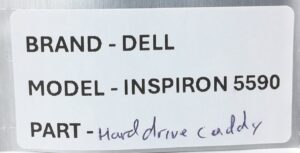 BRAND - DELL
MODEL - INSPIRON 5590
PART - Hard drive caddy